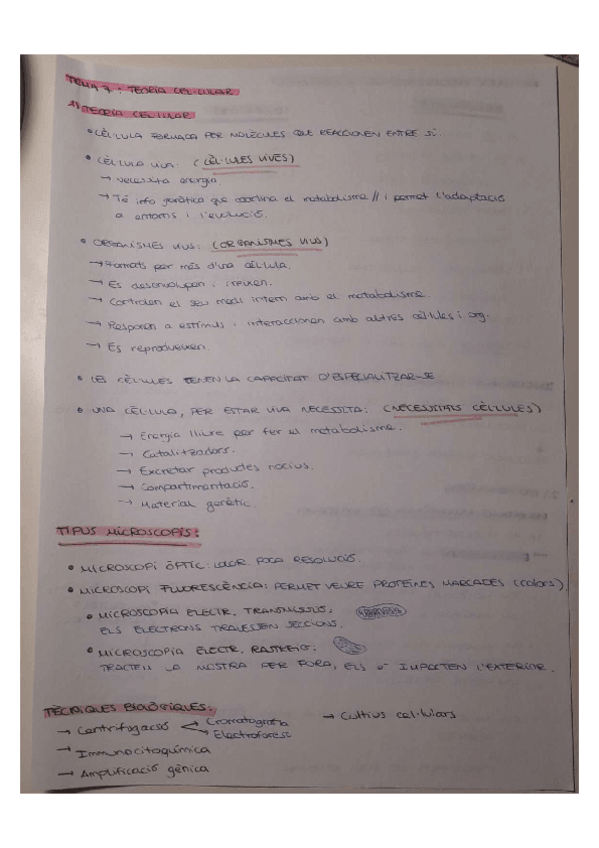 TEMA 7: TEORIA CEL·LULAR
1) TEORIA CEL·LULAR
• CÈL·LULA FORMADA PER MOLÈCULES QUE REACCIONEN ENTRE SÍ.
• CÈL·LULA VIVA: (CÈL·LULES VIVES)
→ Necessita energia
→ Té info genètica que coordina el metabolisme // i permet l'adaptació
a entorns i l'evolució.
• ORGANISMES VIUS: (ORGANISMES VIUS)
→ Formats per més d'una cèl·lula.
→ Es desenvolupen i creixen.
→ Controlen el seu medi intern amb el metabolisme.
→ Responen a estímuls i interaccionen amb altres cèl·lules i org.
→ Es reprodueixen.
• LES CÈL·LULES TENEN LA CAPACITAT D'ESPECIALITZAR-SE
• UNA CÈL·LULA, PER ESTAR VIVA NECESSITA: (NECESSITATS CÈL·LULES)
→ Energia lliure per fer el metabolisme.
→ Catalitzadors.
→ Excretar productes nocius.
→ Compartimentació.
→ Material genètic.
TIPUS MICROSCOPIS:
• MICROSCOPI ÒPTIC: COLOR POCA RESOLUCIÓ.
• MICROSCOPI FLUORESCÈNCIA: PERMET VEURE PROTEÏNES MARCADES (colors).
• MICROSCOPIA ELECTR. TRANSMISSIÓ:
ELS ELECTRONS TRAVESSEN SECCIONS.
• MICROSCOPÍA ELECTR. RASTREIG:
TRACTEM LA MOSTRA PER FORA, ELS e⁻ IMPACTEN L'EXTERIOR.
TÈCNIQUES BIOLÒGIQUES:
→ Centrifugació < Cromatografia → Cultius cel·lulars
Electroforesi
→ Immunocitoquímica
→ Amplificació gènica